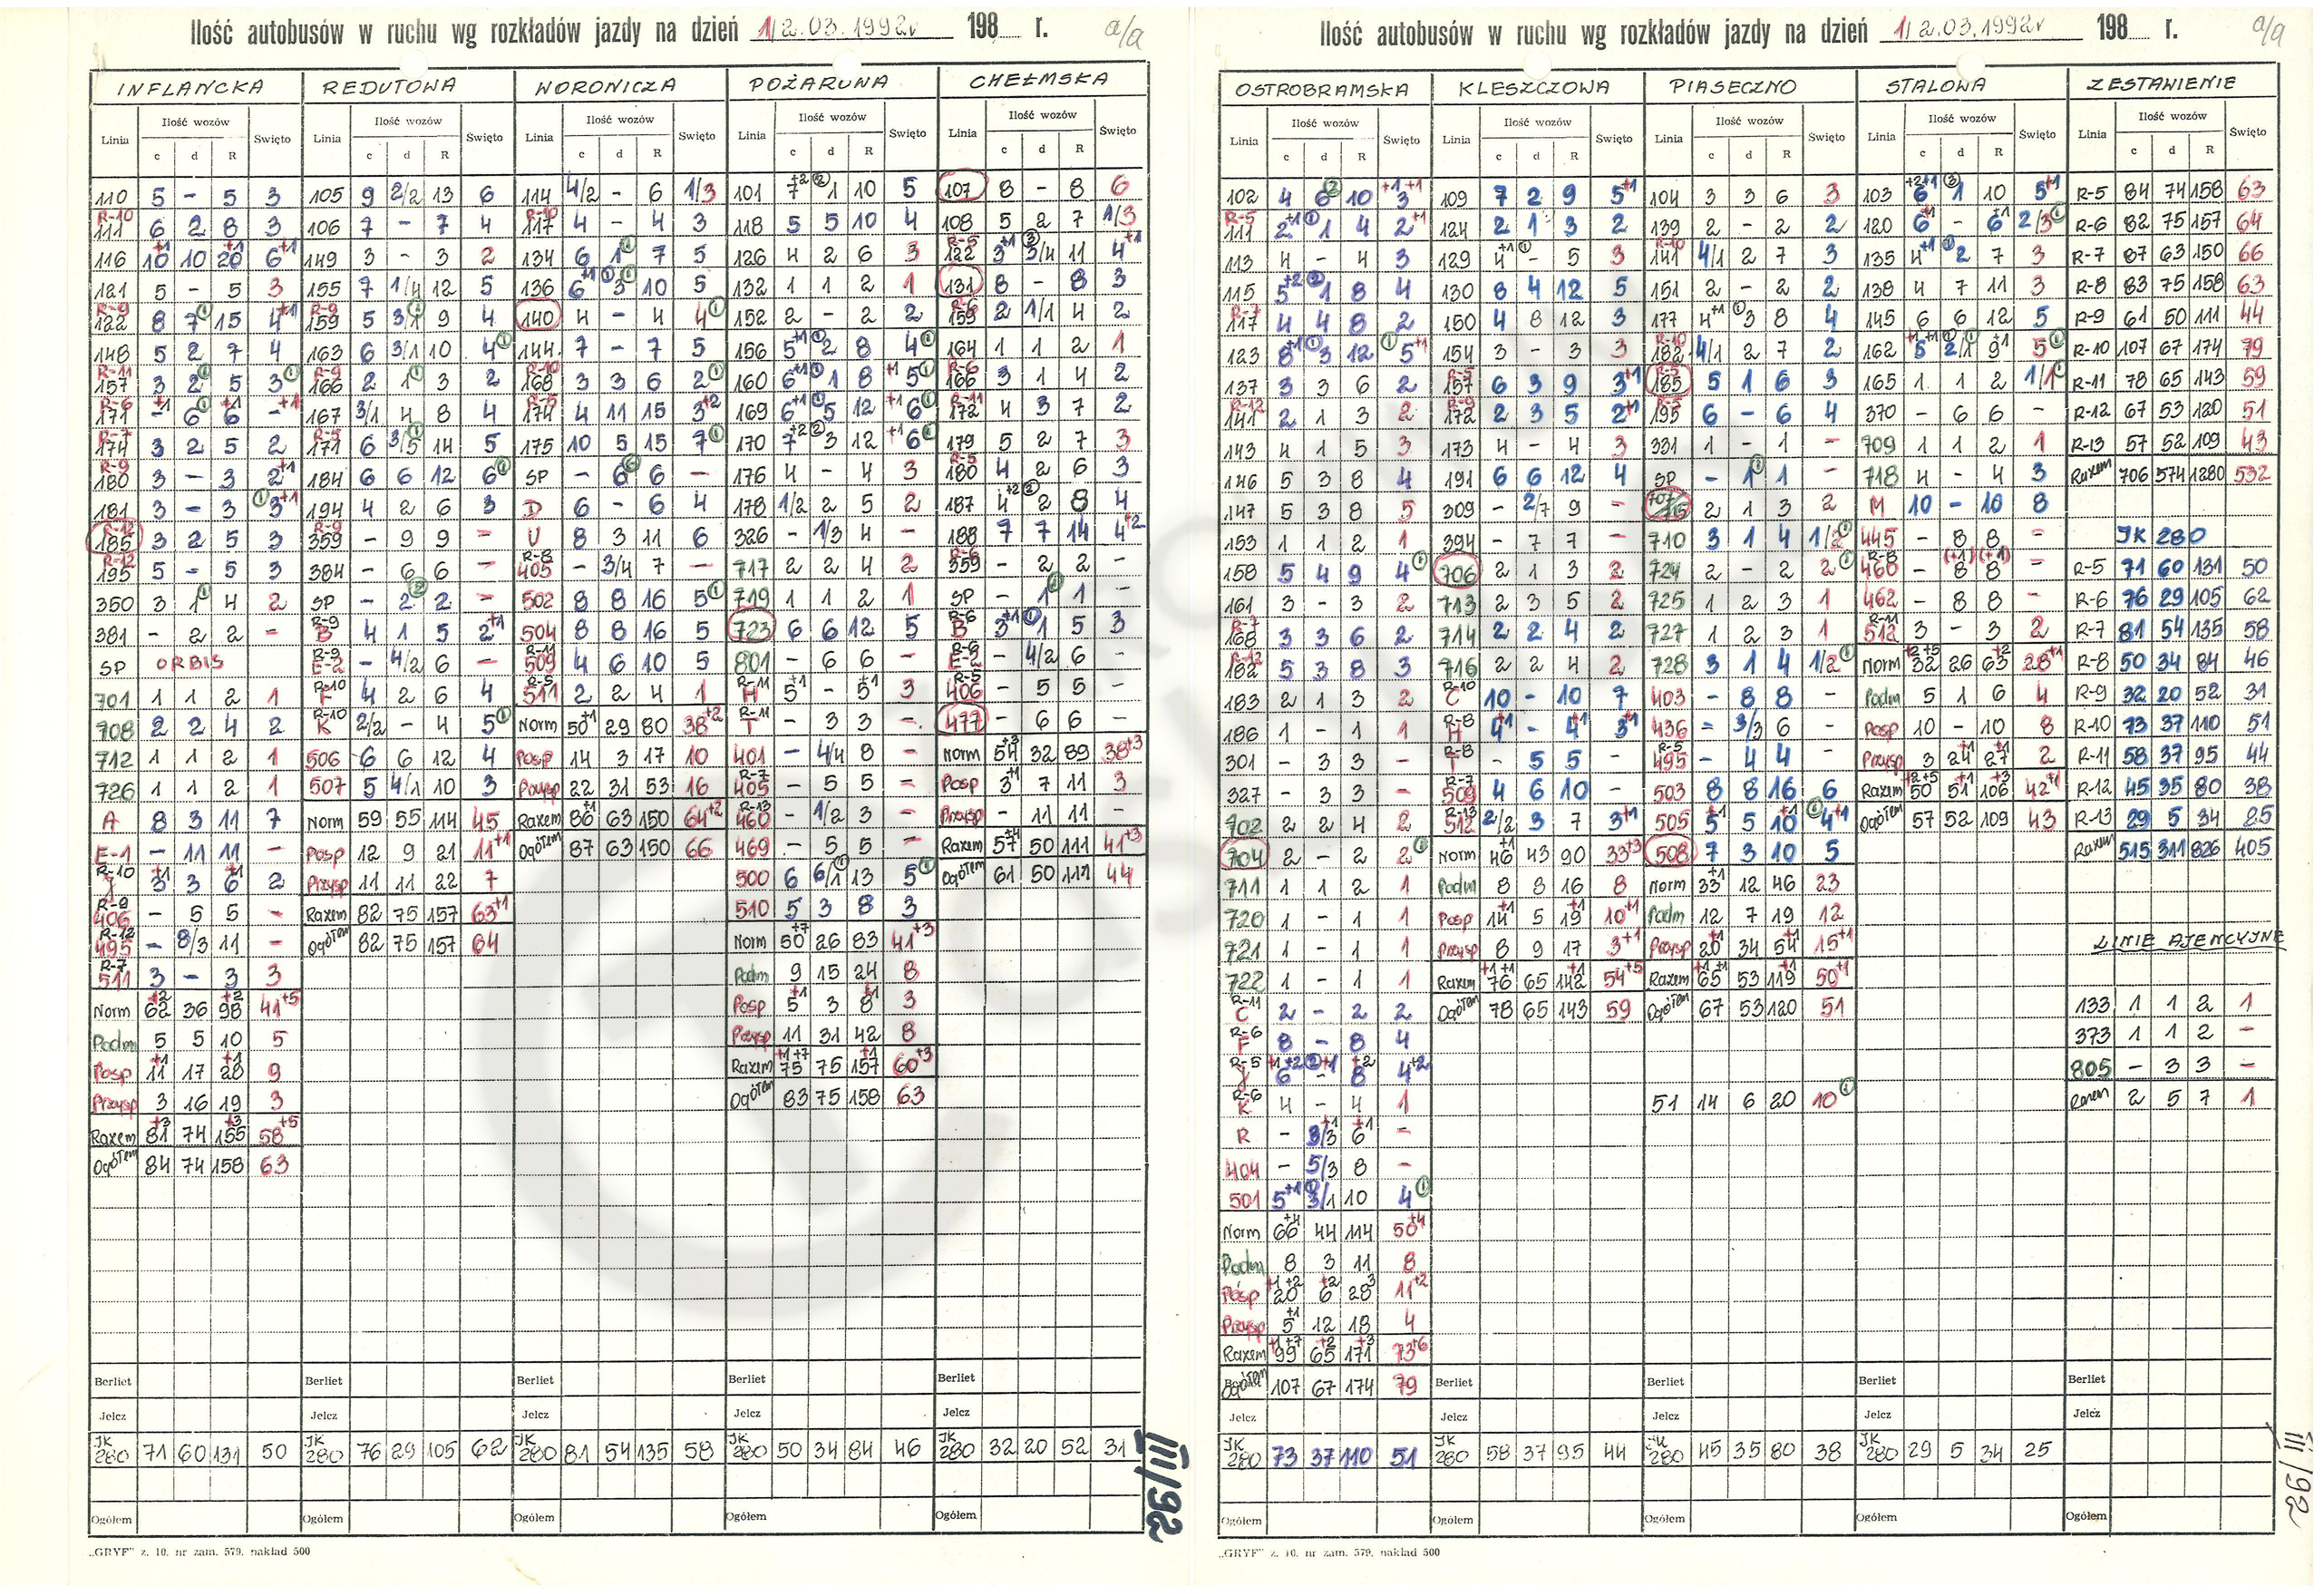 Ilość autobusów w ruchu wg rozkładów jazdy na dzień 1/2.03.1992r 198 r. a/a
INFLANCKA
Linia Ilość wozów Święto
c d R
110 5 - 5 3
R-10 111 6 2 8 3
116 10+1 10 20+1 6+1
121 5 - 5 3
R-9 122 8 7① 15 4+1
148 5 2 7 4
R-11 157 3 2① 5 3①
R-6 171 -+1 6① 6+1 -+1
R-7 174 3 2 5 2
R-9 180 3 - 3 2+1
181 3 - 3 ①3+1
R-12 185 3 2 5 3
R-12 195 5 - 5 3
350 3 1① 4 2
381 - 2 2 -
SP ORBIS
701 1 1 2 1
708 2 2 4 2
712 1 1 2 1
726 1 1 2 1
A 8 3 11 7
E-1 - 11 11 -
R-10 J 3+1 3 6+1 2
R-8 406 - 5 5 -
R-12 495 - 8/3 11 -
R-7 511 3 - 3 3
Norm 62+2 36 98+2 41+5
Podm 5 5 10 5
Posp 11+1 17 28+1 9
Przysp 3 16 19 3
Razem 81+3 74 155+3 58+5
Ogółem 84 74 158 63
Berliet
Jelcz
JK 280 71 60 131 50
Ogółem
REDUTOWA
Linia Ilość wozów Święto
c d R
105 9 2/2 13 6
106 7 - 7 4
149 3 - 3 2
155 7 1/4 12 5
R-9 159 5 3/1① 9 4
163 6 3/1 10 4①
R-9 166 2 1① 3 2
167 3/1 4 8 4
R-5 171 6 3/5① 14 5
184 6 6 12 6①
194 4 2 6 3
R-9 359 - 9 9 -
384 - 6 6 -
SP - 2② 2 -
R-9 B 4 1 5 2+1
R-9 E-2 - 4/2 6 -
R-10 F 4 2 6 4
R-10 K 2/2 - 4 5①
506 6 6 12 4
507 5 4/1 10 3
Norm 59 55 114 45
Posp 12 9 21 11+1
Przysp 11 11 22 7
Razem 82 75 157 63+1
Ogółem 82 75 157 64
Berliet
Jelcz
JK 280 76 29 105 62
Ogółem
WORONICZA
Linia Ilość wozów Święto
c d R
114 4/2 - 6 1/3
R-10 117 4 - 4 3
134 6 1① 7 5
136 6+1 ①3① 10 5
140 4 - 4 4①
144 7 - 7 5
R-10 168 3 3 6 2①
R-5 174 4 11 15 3+2
175 10 5 15 7①
SP - 6 6 -
D 6 - 6 4
U 8 3 11 6
R-8 405 - 3/4 7 -
502 8 8 16 5①
504 8 8 16 5
R-11 509 4 6 10 5
R-5 511 2 2 4 1
Norm 50+1 29 80 38+2
Posp 14 3 17 10
Przysp 22 31 53 16
Razem 86+1 63 150 64+2
Ogółem 87 63 150 66
Berliet
Jelcz
JK 280 81 54 135 58
Ogółem
POŻAROWA
Linia Ilość wozów Święto
c d R
101 7+2 ②1 10 5
118 5 5 10 4
126 4 2 6 3
132 1 1 2 1
152 2 - 2 2
156 5+1 ①2 8 4①
160 6+1 ①1 8 +1 5①
169 6+1 ①5 12 +1 6①
170 7+2 ②3 12 +1 6①
176 4 - 4 3
178 1/2 2 5 2
326 - 1/3 4 -
717 2 2 4 2
719 1 1 2 1
723 6 6 12 5
801 - 6 6 -
R-11 H 5+1 - 5+1 3
R-11 T - 3 3 -
401 - 4/4 8 -
R-7 405 - 5 5 -
R-13 460 - 1/2 3 -
469 - 5 5 -
500 6 6/1① 13 5①
510 5 3 8 3
Norm 50+7 26 83 41+3
Podm 9 15 24 8
Posp 5+1 3 8+1 3
Przysp 11 31 42 8
Razem 75+1+7 75 157+1 60+3
Ogółem 83 75 158 63
Berliet
Jelcz
JK 280 50 34 84 46
Ogółem
CHEŁMSKA
Linia Ilość wozów Święto
c d R
107 8 - 8 6
108 5 2 7 1/3
R-5 122 3+1 ③3/4 11 4+1
131 8 - 8 3
R-6 159 2 1/1 4 2
164 1 1 2 1
R-6 166 3 1 4 2
R-11 172 4 3 7 2
179 5 2 7 3
R-5 180 4 2 6 3
187 4+2 ②2 8 4
188 7 7 14 4+2
R-6 359 - 2 2 -
SP - 1① 1 -
R-6 B 3+1 ①1 5 3
R-6 E-2 - 4/2 6 -
R-5 406 - 5 5 -
477 - 6 6 -
Norm 54+3 32 89 38+3
Posp 3+1 7 11 3
Przysp - 11 11 -
Razem 57+4 50 111 41+3
Ogółem 61 50 111 44
Berliet
Jelcz
JK 280 32 20 52 31
Ogółem
III/92
„GRYF" z. 10. nr zam. 579. nakład 500
Ilość autobusów w ruchu wg rozkładów jazdy na dzień 1/2.03.1992r 198 r. a/a
OSTROBRAMSKA
Linia Ilość wozów Święto
c d R
102 4 6② 10 3+1+1
R-5 111 2+1 ①1 4 2+1
113 4 - 4 3
115 5+2 ②1 8 4
R-7 117 4 4 8 2
123 8+1 ①3 12 ①5+1
137 3 3 6 2
R-12 141 2 1 3 2
143 4 1 5 3
146 5 3 8 4
147 5 3 8 5
153 1 1 2 1
158 5 4 9 4①
161 3 - 3 2
R-7 168 3 3 6 2
R-12 182 5 3 8 3
183 2 1 3 2
186 1 - 1 1
301 - 3 3 -
327 - 3 3 -
702 2 2 4 2
704 2 - 2 2①
711 1 1 2 1
720 1 - 1 1
721 1 - 1 1
722 1 - 1 1
R-11 C 2 - 2 2
R-6 F 8 - 8 4
R-5 J 6+1+2 ②-+1 8+2 4+2
R-6 K 4 - 4 1
R - 3/3+1 6+1 -
404 - 5/3 8 -
501 5+1 ①3/1 10 4①
Norm 66+4 44 114 50+4
Podm 8 3 11 8
Posp 20+1+2 6+2 28 3 11+2
Przysp 5+1 12 18 4
Razem 99+1+7 65+2 171+3 73+6
Ogółem 107 67 174 79
Jelcz
JK 280 73 37 110 51
Ogółem
KLESZCZOWA
Linia Ilość wozów Święto
c d R
109 7 2 9 5+1
124 2 1 3 2
129 4+1 ①- 5 3
130 8 4 12 5
150 4 8 12 3
154 3 - 3 3
R-5 157 6 3 9 3+1
R-9 172 2 3 5 2+1
173 4 - 4 3
191 6 6 12 4
309 - 2/7 9 -
394 - 7 7 -
706 2 1 3 2
713 2 3 5 2
714 2 2 4 2
716 2 2 4 2
R-10 C 10 - 10 7
R-8 H 4+1 - 4+1 3+1
R-8 T - 5 5 -
R-7 509 4 6 10 -
R-13 512 2/2 3 7 3+1
Norm 46+1 43 90 33+3
Podm 8 8 16 8
Posp 14+1 5 19+1 10+1
Przysp 8 9 17 3+1
Razem 76+1+1 65 142+1 54+5
Ogółem 78 65 143 59
Berliet
Jelcz
JK 280 58 37 95 44
Ogółem
PIASECZNO
Linia Ilość wozów Święto
c d R
104 3 3 6 3
139 2 - 2 2
R-10 141 4/1 2 7 3
151 2 - 2 2
177 4+1 ①3 8 4
R-10 182 4/1 2 7 2
R-5 185 5 1 6 3
R-5 195 6 - 6 4
331 1 - 1 -
SP - 1① 1 -
707 715 2 1 3 2
710 3 1 4 1/2①
724 2 - 2 2①
725 1 2 3 1
727 1 2 3 1
728 3 1 4 1/2①
403 - 8 8 -
436 - 3/3 6 -
R-5 495 - 4 4 -
503 8 8 16 6
505 5+1 5 10+1 ①4+1
508 7 3 10 5
Norm 33+1 12 46 23
Podm 12 7 19 12
Przysp 20+1 34 54+1 15+1
Razem 65+1+1 53 119+1 50+1
Ogółem 67 53 120 51
51 14 6 20 10①
Berliet
Jelcz
JK 280 45 35 80 38
Ogółem
STALOWA
Linia Ilość wozów Święto
c d R
103 6+2+1 ③1 10 5+1
120 6+1 - 6+1 2/3①
135 4+1 ①2 7 3
138 4 7 11 3
145 6 6 12 5
162 5+1+1 ①2/1① 9+1 5①
165 1 1 2 1/1①
370 - 6 6 -
709 1 1 2 1
718 4 - 4 3
M 10 - 10 8
445 - 8 8 -
R-8 460 - 8(+1) 8(+1) -
462 - 8 8 -
R-11 512 3 - 3 2
Norm 32+2+5 26 63+2 28+1
Podm 5 1 6 4
Posp 10 - 10 8
Przysp 3 24+1 27+1 2
Razem 50+2+5 51+1 106+3 42+1
Ogółem 57 52 109 43
Berliet
Jelcz
JK 280 29 5 34 25
Ogółem
ZESTAWIENIE
Linia Ilość wozów Święto
c d R
R-5 84 74 158 63
R-6 82 75 157 64
R-7 87 63 150 66
R-8 83 75 158 63
R-9 61 50 111 44
R-10 107 67 174 79
R-11 78 65 143 59
R-12 67 53 120 51
R-13 57 52 109 43
Razem 706 574 1280 532
JK 280
R-5 71 60 131 50
R-6 76 29 105 62
R-7 81 54 135 58
R-8 50 34 84 46
R-9 32 20 52 31
R-10 73 37 110 51
R-11 58 37 95 44
R-12 45 35 80 38
R-13 29 5 34 25
Razem 515 311 826 405
LINIE AJENCYJNE
133 1 1 2 1
373 1 1 2 -
805 - 3 3 -
Razem 2 5 7 1
Berliet
Jelcz
Ogółem
III/92
„GRYF" z. 10. nr zam. 579. nakład 500